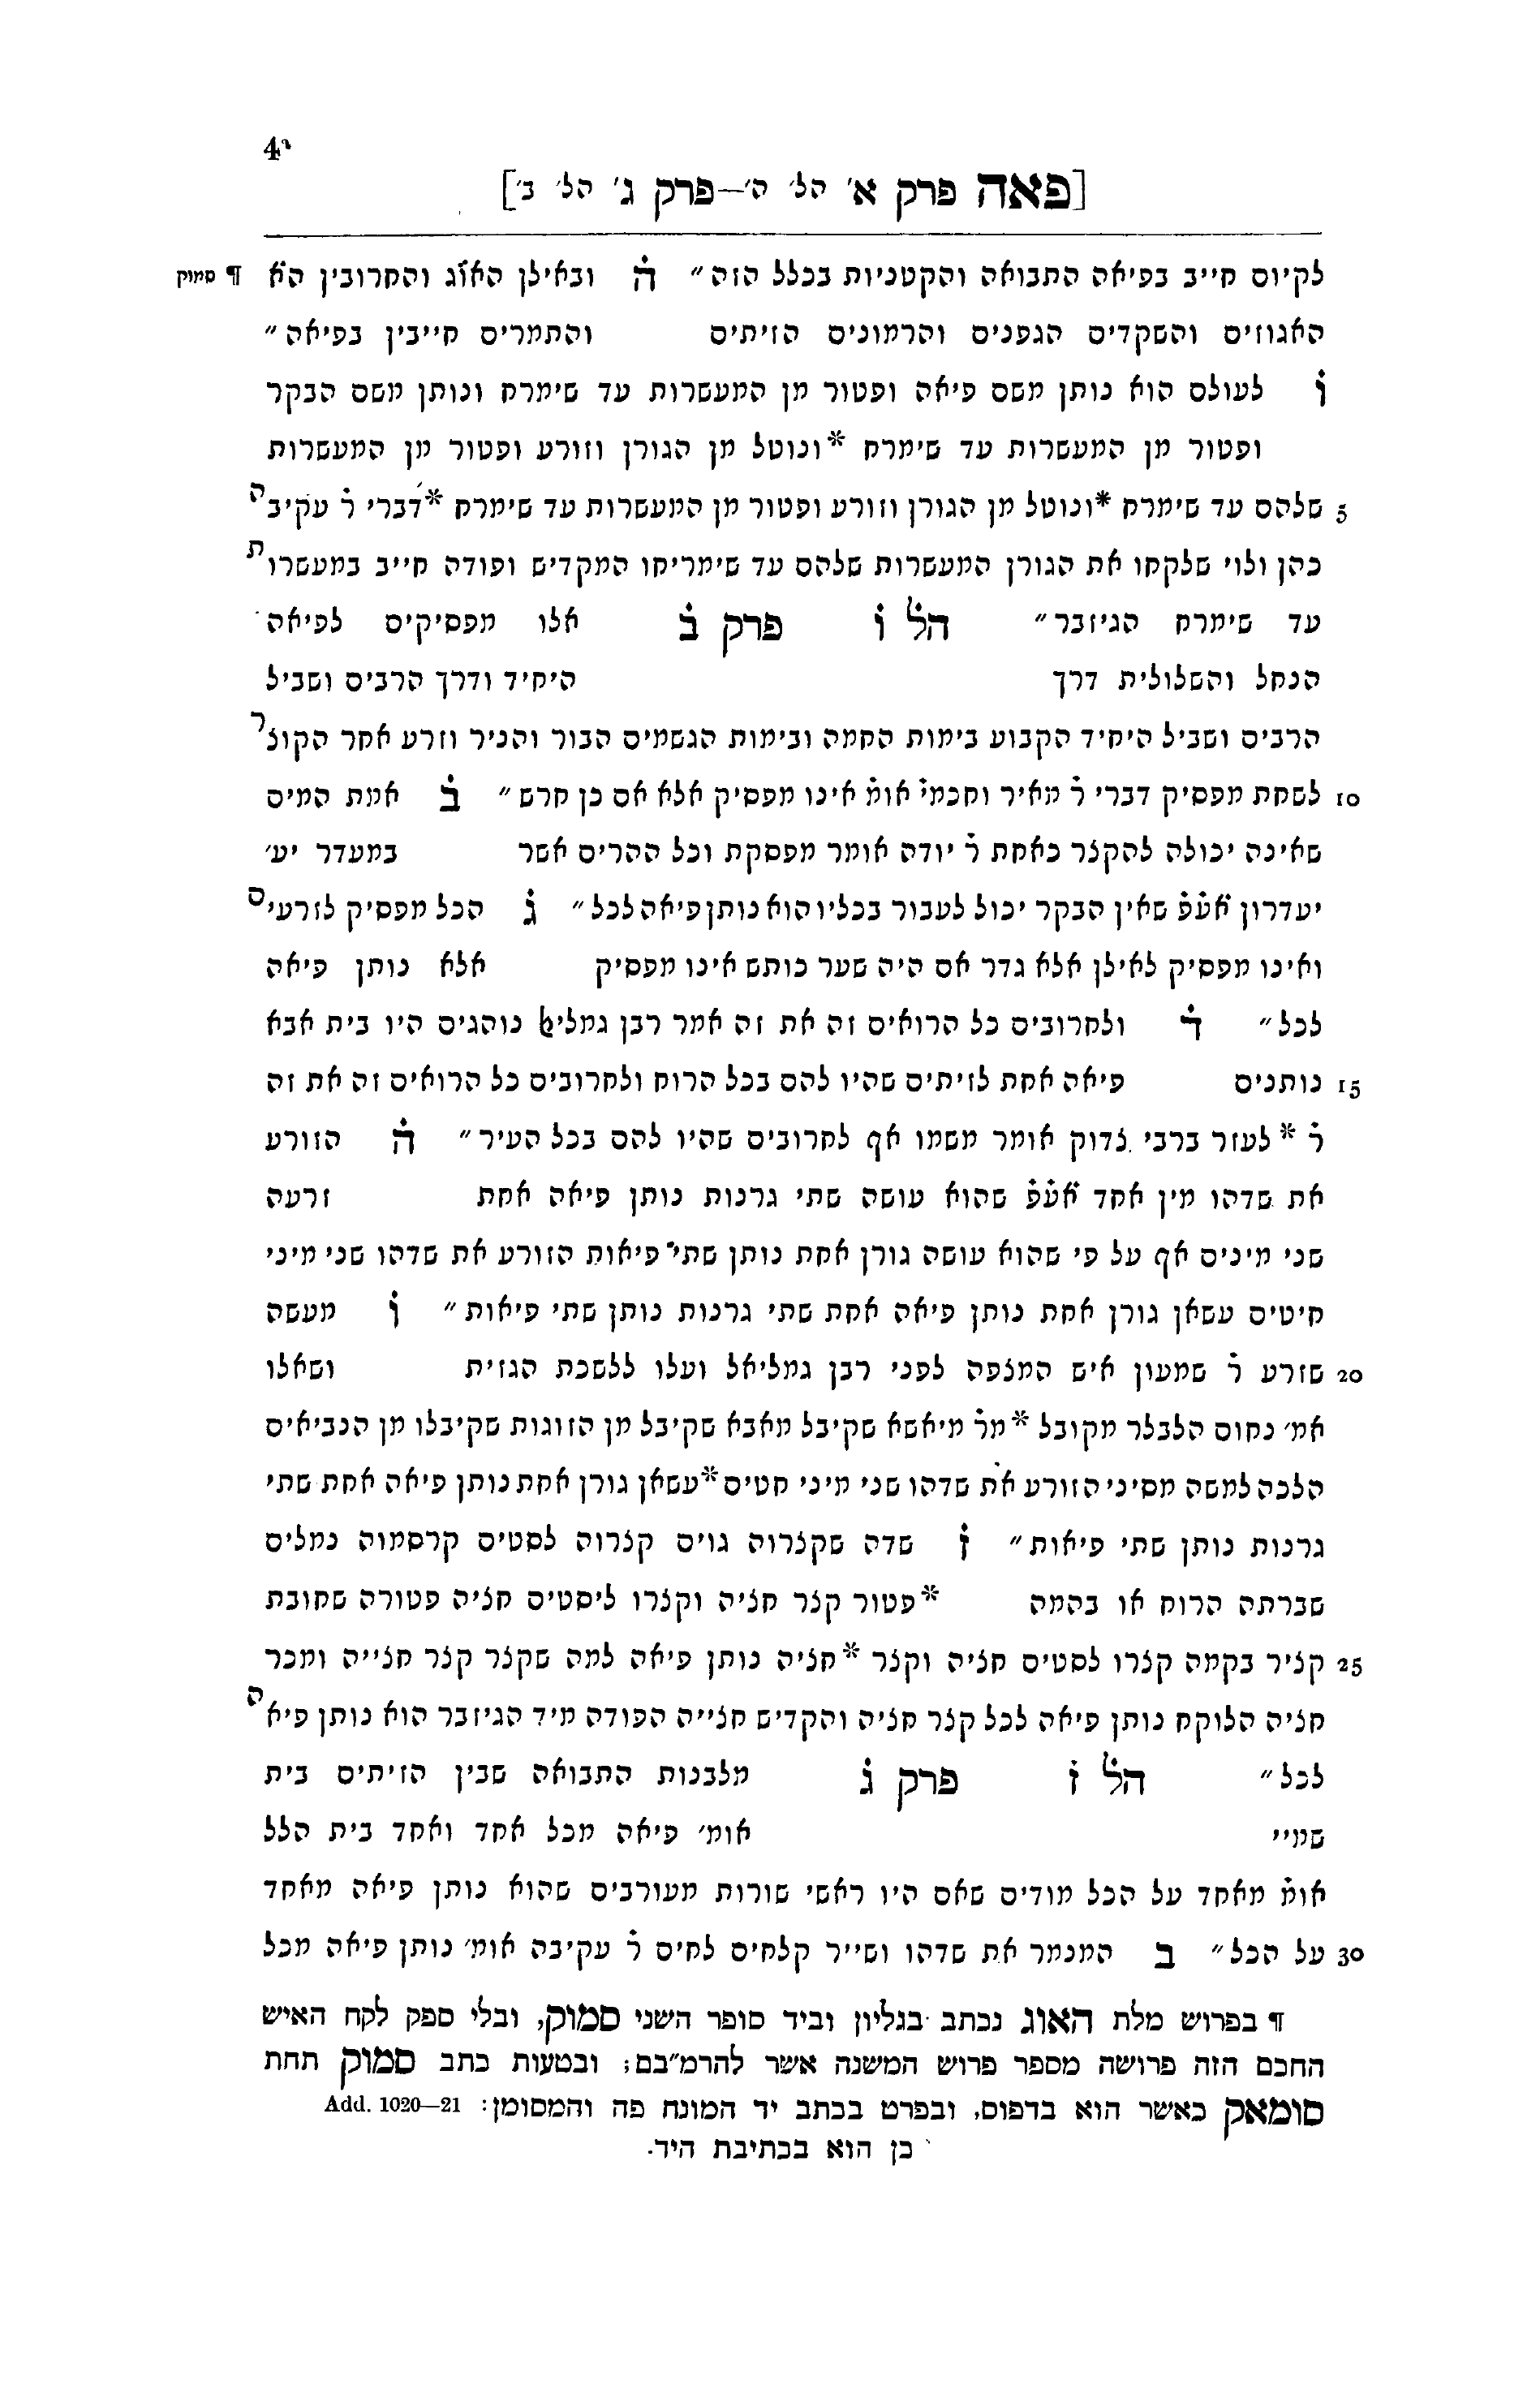 4ר
[פאה פרק א׳ הל׳ ה׳—פרק ג׳ הל׳ ב׳]
לקיום חייב בפיאה התבואה והקטניות בכלל הזה״ ה̇ ובאילן האוג והחרובין הא̇ ¶ סמוק
האגוזים והשקדים הגפנים והרמונים הזיתים והתמרים חייבין בפיאה״
ו̇ לעולם הוא נותן משם פיאה ופטור מן המעשרות עד שימרח ונותן משם הבקר
ופטור מן המעשרות עד שימרח *ונוטל מן הגורן וזורע ופטור מן המעשרות
5 שלהם עד שימרח *ונוטל מן הגורן וזורע ופטור מן המעשרות עד שימרח *דברי ר̇ עקיבה
כהן ולוי שלקחו את הגורן המעשרות שלהם עד שימריחו המקדיש ופודה חייב במעשרות
עד שימרח הגיזבר״ הל̇ ו̇ פרק ב̇ אלו מפסיקים לפיאה
הנחל והשלולית דרך היחיד ודרך הרבים ושביל
הרבים ושביל היחיד הקבוע בימות החמה ובימות הגשמים הבור והניר וזרע אחר הקוצר
10 לשחת מפסיק דברי ר̇ מאיר וחכמי̇ אומ̇ אינו מפסיק אלא אם כן חרש״ ב̇ אמת המים
שאינה יכולה להקצר כאחת ר̇ יודה אומר מפסקת וכל ההרים אשר במעדר יע׳
יעדרון א̇ע̇פ̇ שאין הבקר יכול לעבור בכליו הוא נותן פיאה לכל״ ג̇ הכל מפסיק לזרעים
ואינו מפסיק לאילן אלא גדר אם היה שער כותש אינו מפסיק אלא נותן פיאה
לכל״ ד̇ ולחרובים כל הרואים זה את זה אמר רבן גמליﭏ נוהגים היו בית אבא
15 נותנים פיאה אחת לזיתים שהיו להם בכל הרוח ולחרובים כל הרואים זה את זה
ר̇ *לעזר ברבי צדוק אומר משמו אף לחרובים שהיו להם בכל העיר״ ה̇ הזורע
את שדהו מין אחד א̇ע̇פ̇ שהוא עושה שתי גרנות נותן פיאה אחת זרעה
שני מינים אף על פי שהוא עושה גורן אחת נותן שתי פיאות הזורע את שדהו שני מיני
חיטים עשאן גורן אחת נותן פיאה אחת שתי גרנות נותן שתי פיאות״ ו̇ מעשה
20 שזרע ר̇ שמעון איש המצפה לפני רבן גמליאל ועלו ללשכת הגזית ושאלו
אמ׳ נחום הלבלר מקובל *מר̇ מיאשא שקיבל מאבא שקיבל מן הזוגות שקיבלו מן הנביאים
הלכה למשה מסיני הזורע את שדהו שני מיני חטים *עשאן גורן אחת נותן פיאה אחת שתי
גרנות נותן שתי פיאות״ ז̇ שדה שקצרוה גוים קצרוה לסטים קרסמוה נמלים
שברתה הרוח או בהמה *פטור קצר חציה וקצרו ליסטים חציה פטורה שחובת
25 קציר בקמה קצרו לסטים חציה וקצר *חציה נותן פיאה למה שקצר קצר חצייה ומכר
חציה הלוקח נותן פיאה לכל קצר חציה והקדיש חצייה הפודה מיד הגיזבר הוא נותן פיאה
לכל״ הל̇ ז̇ פרק ג̇ מלבנות התבואה שבין הזיתים בית
שמיי אומ׳ פיאה מכל אחד ואחד בית הלל
אומ̇ מאחד על הכל מודים שאם היו ראשי שורות מעורבים שהוא נותן פיאה מאחד
30 על הכל״ ב המנמר את שדהו ושייר קלחים לחים ר̇ עקיבה אומ׳ נותן פיאה מכל
¶ בפרוש מלת האוג נכתב בגליון וביד סופר השני סמוק, ובלי ספק לקח האיש
החכם הזה פרושה מספר פרוש המשנה אשר להרמ״בם; ובטעות כתב סמוק תחת
סומאק כאשר הוא בדפוס, ובפרט בכתב יד המונח פה והמסומן: Add. 1020—21
כן הוא בכתיבת היד.